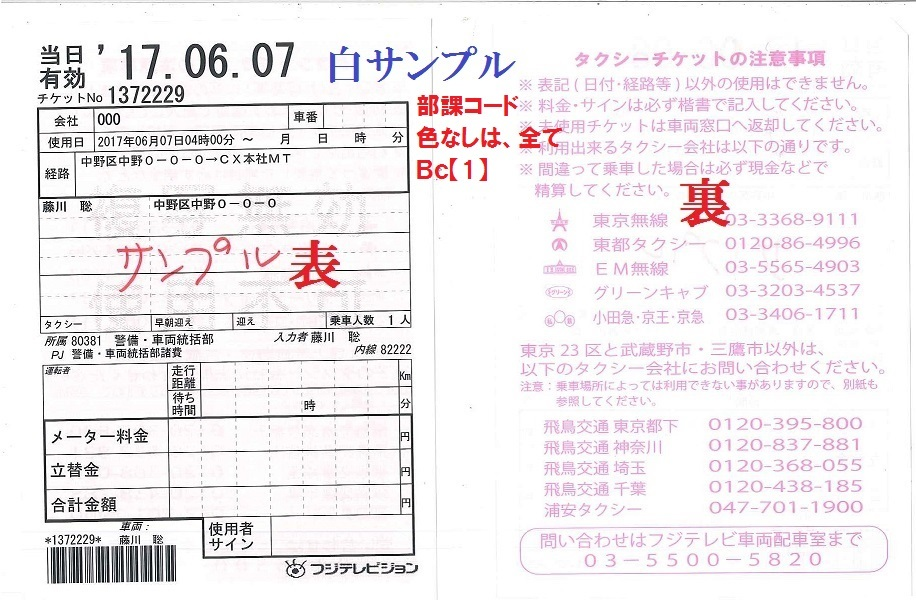 当日有効 '17.06.07
チケットNo 1372229
会社 000 車番
使用日 2017年06月07日04時00分 ～ 月 日 時 分
経路 中野区中野０－０－０→ＣＸ本社ＭＴ
藤川 聡 中野区中野０－０－０
サンプル 表
タクシー 早朝迎え 迎え 乗車人数 1 人
所属 80381 警備・車両統括部 入力者 藤川 聡
PJ 警備・車両統括部諸費 内線 82222
運転者 走行距離 Km
待ち時間 時 分
メーター料金 円
立替金 円
合計金額 円
車両：
*1372229* 藤川 聡
使用者サイン
フジテレビジョン
白サンプル
部課コード
色なしは、全て
Bc【１】
裏
タクシーチケットの注意事項
※ 表記（日付・経路等）以外の使用はできません。
※ 料金・サインは必ず楷書で記入してください。
※ 未使用チケットは車両窓口へ返却してください。
※ 利用出来るタクシー会社は以下の通りです。
※ 間違って乗車した場合は必ず現金などで
精算してください。
東京無線 03-3368-9111
東都タクシー 0120-86-4996
ＥＭ無線 03-5565-4903
グリーンキャブ 03-3203-4537
小田急・京王・京急 03-3406-1711
東京 23 区と武蔵野市・三鷹市以外は、
以下のタクシー会社にお問い合わせください。
注意：乗車場所によっては利用できない事がありますので、別紙も
参照してください。
飛鳥交通 東京都下 0120-395-800
飛鳥交通 神奈川 0120-837-881
飛鳥交通 埼玉 0120-368-055
飛鳥交通 千葉 0120-438-185
浦安タクシー 047-701-1900
問い合わせはフジテレビ車両配車室まで
０３－５５００－５８２０